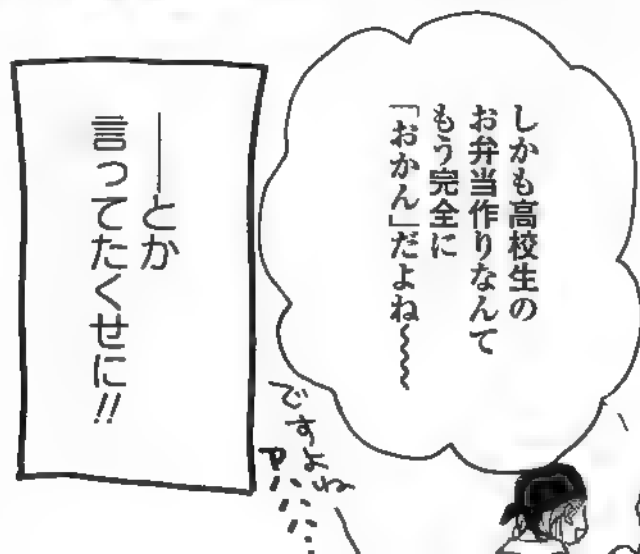 しかも高校生の
お弁当作りなんて
もう完全に
「おかん」だよね〜〜
ですよね
アハハハ…
――とか
言ってたくせに!!